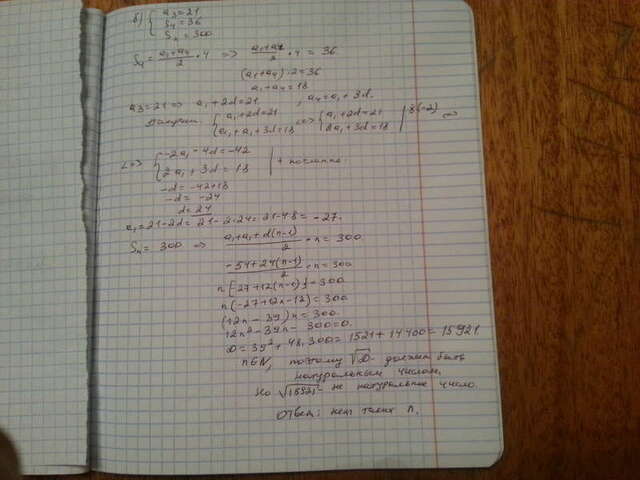 б) { a₃ = 21
S₄ = 36
Sₙ = 300
S₄ = (a₁ + a₄)/2 · 4 => (a₁ + a₄)/2 · 4 = 36
(a₁ + a₄) · 2 = 36
a₁ + a₄ = 18
a₃ = 21 => a₁ + 2d = 21 , a₄ = a₁ + 3d.
{ a₁ + 2d = 21 <=> { a₁ + 2d = 21 | · (-2) <=>
a₁ + a₁ + 3d = 18 2a₁ + 3d = 18
<=> { -2a₁ - 4d = -42
2a₁ + 3d = 18 | + почленно
-d = -42 + 18
-d = -24
d = 24
a₁ = 21 - 2d = 21 - 2·24 = 21 - 48 = -27.
Sₙ = 300 => (a₁ + a₁ + d(n-1))/2 · n = 300
(-54 + 24(n-1))/2 · n = 300
n[-27 + 12(n-1)] = 300
n(-27 + 12n - 12) = 300
(12n - 39)n = 300
12n² - 39n - 300 = 0.
D = 39² + 48·300 = 1521 + 14400 = 15921
n∈N, поэтому √D - должен быть
натуральным числом,
Но √15921 - не натуральное число.
Ответ: нет таких n.